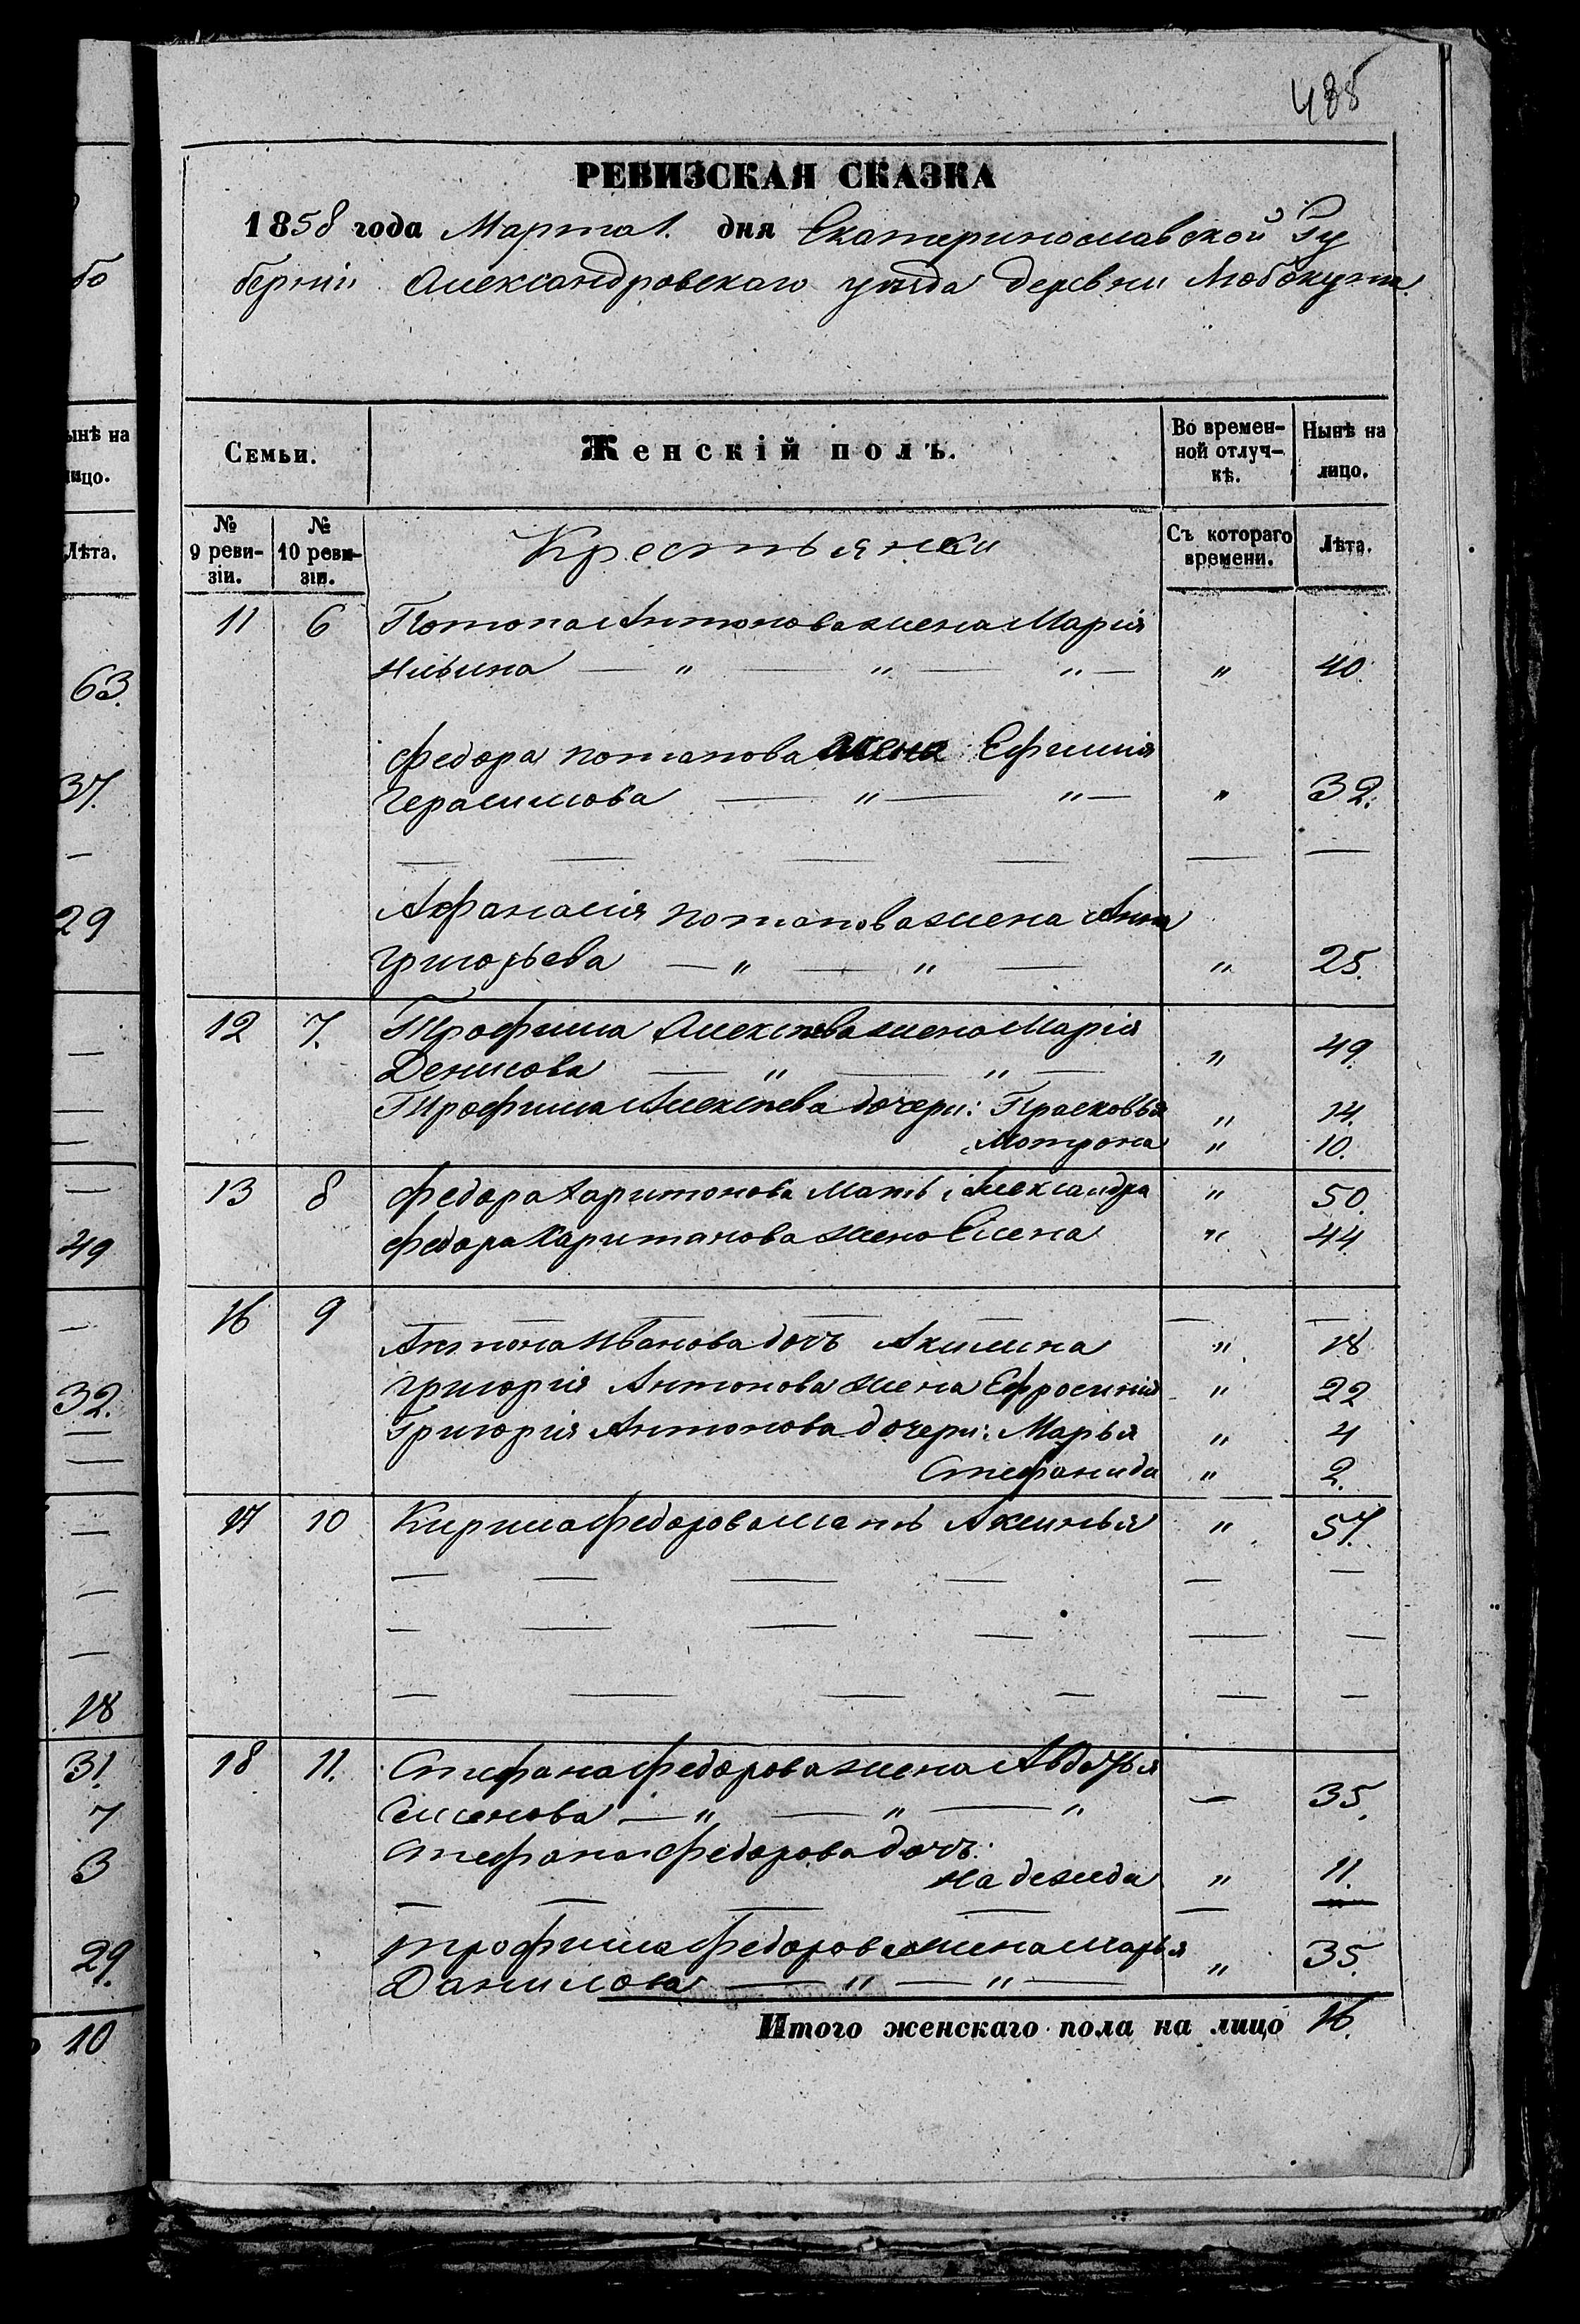 485
РЕВИЗСКАЯ СКАЗКА
1858 года Марта 1. дня Екатеринославской Гу
берніи Александровскаго уѣзда деревни Любокута
Семьи.
Женскій полъ.
Во времен-
ной отлуч-
кѣ.
Нынѣ на
лицо.
№
9 реви-
зіи.
№
10 реви-
зіи.
Крестьянки
Съ котораго
времени.
Лѣта.
11 6 Потапа Антонова жена Марія
Ильина — " — " — " — " 40.
Федора Потапова жена Ефимія
Герасимова — " — " — " 32.
— — — — — —
Афанасія Потапова жена Анна
Григорьева — " — " — " 25.
12 7. Трофима Алексѣева жена Марія
Денисова — " — " — " 49.
Трофима Алексѣева дочери: Прасковья " 14.
Мотрона " 10.
13 8 Федора Харитонова мать Александра " 50.
Федора Харитонова жена Елена " 44.
16 9 — — — — — —
Антона Иванова дочь Акилина " 18
Григорія Антонова жена Ефросинія " 22
Григорія Антонова дочери: Марья " 4
Стефанида " 2.
17 10 Кирила Федорова мать Аксинья " 57.
— — — — — —
— — — — — —
— — — — — —
18 11. Стефана Федорова жена Авдотья
Семенова — " — " — " — 35.
Стефана Федорова дочь:
Надежда " 11.
— — — — — —
Трофима Федорова жена Марья
Данилова — " — " — " 35.
Итого женскаго пола на лицо 16.
ынѣ на
ицо.
Лѣта.
63.
37.
—
29
—
—
—
—
49
—
32.
—
—
—
—
—
18
31.
7
3
29.
10